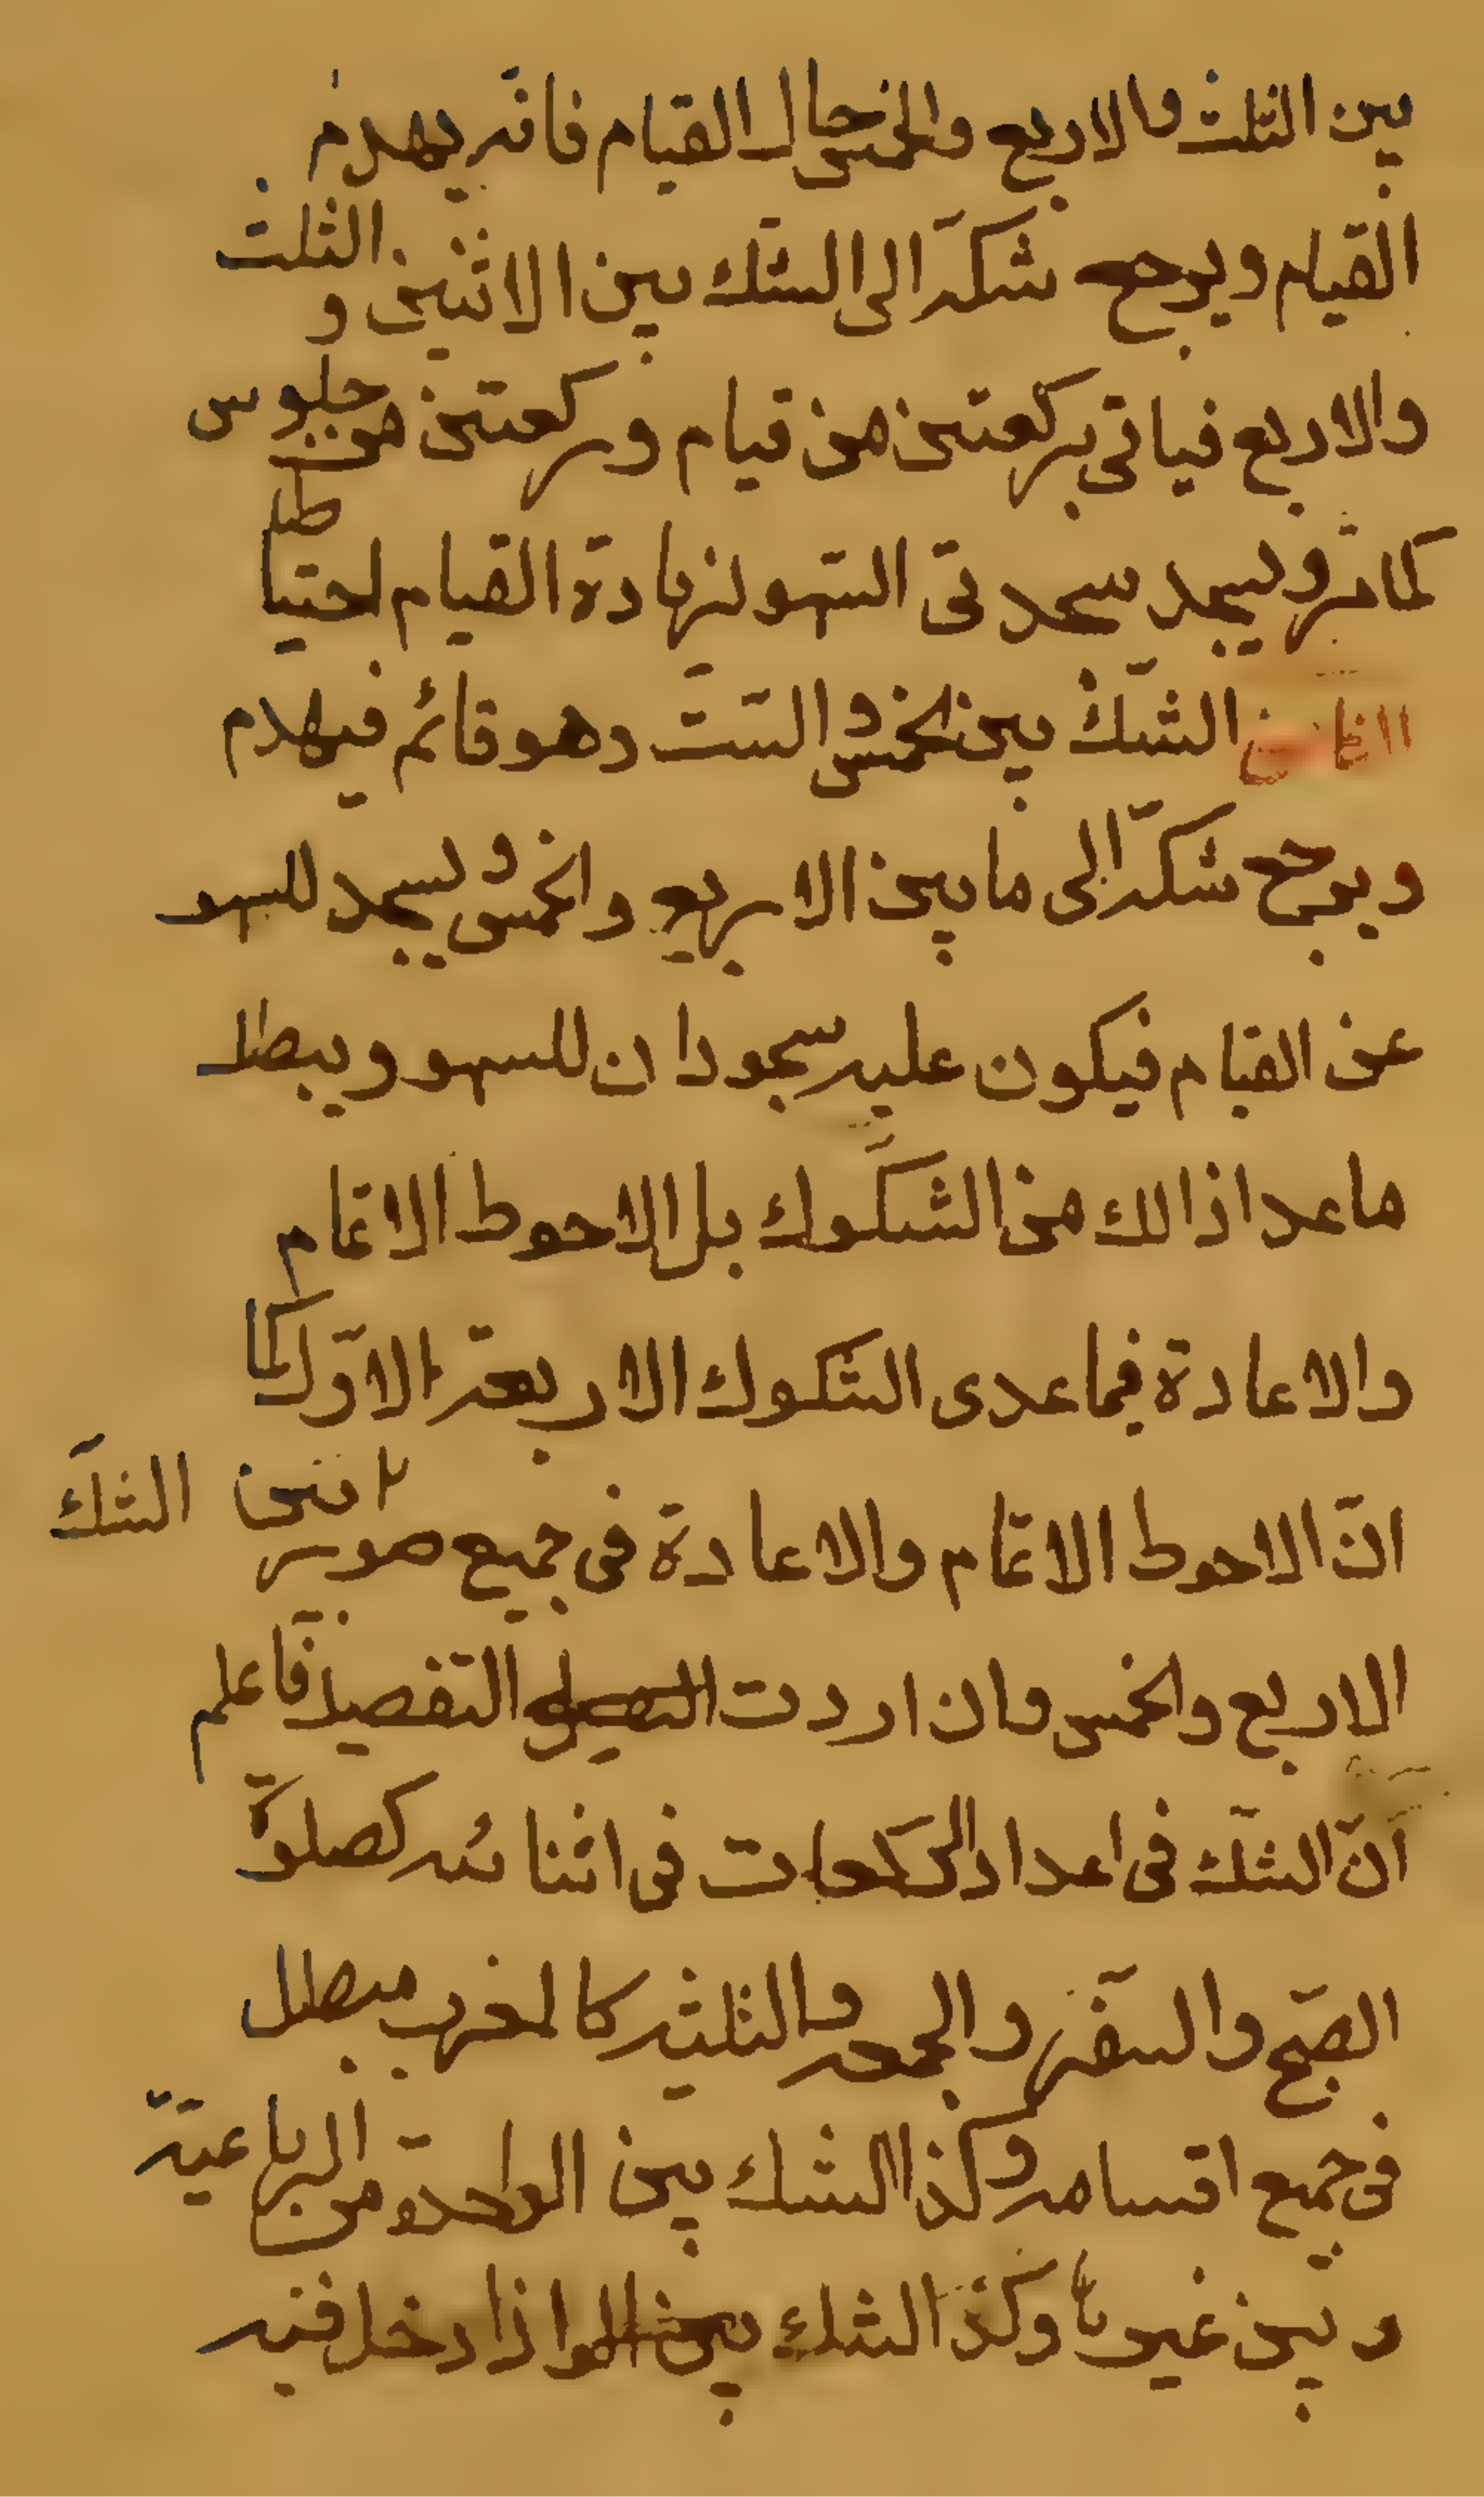 بين الثلث والاربع والخمس حال القيام فانه يهدم
القيام ويرجع شكه الى الشك بين الاثنين و الثلث
والاربع فياتى بركعتين من قيام وركعتين من جلوس
كما مر ويسجد سجدتى السهو لزيادة القيام احتياطا
الشك بين الخمس و الست وهو قائم فيهدم
ويرجع شكه الى ما بين الاربع والخمس و يسجد للسهو
عن القيام فيكون عليه سجودان للسهو ويبطل
ما عدا ذالك من الشكوك بل الاحوط الاتمام
والاعادة فيما عدى الشكوك الاربعة الاول كما
ان الاحوط الاتمام والاعادة فى جميع صور اثنين الشك
الاربع والخمس وان اردت التفصيل فاعلم
ان الشك فى اعداد الركعات فى اثنائه كصلوة
الصبح والسفر والجمعة والثلثية كالمغرب مبطل
فى جميع اقسامه وكذ الشك بين الواحدة من الرباعية
و بين غيرها وكذا الشك بين اذا دخل فيه